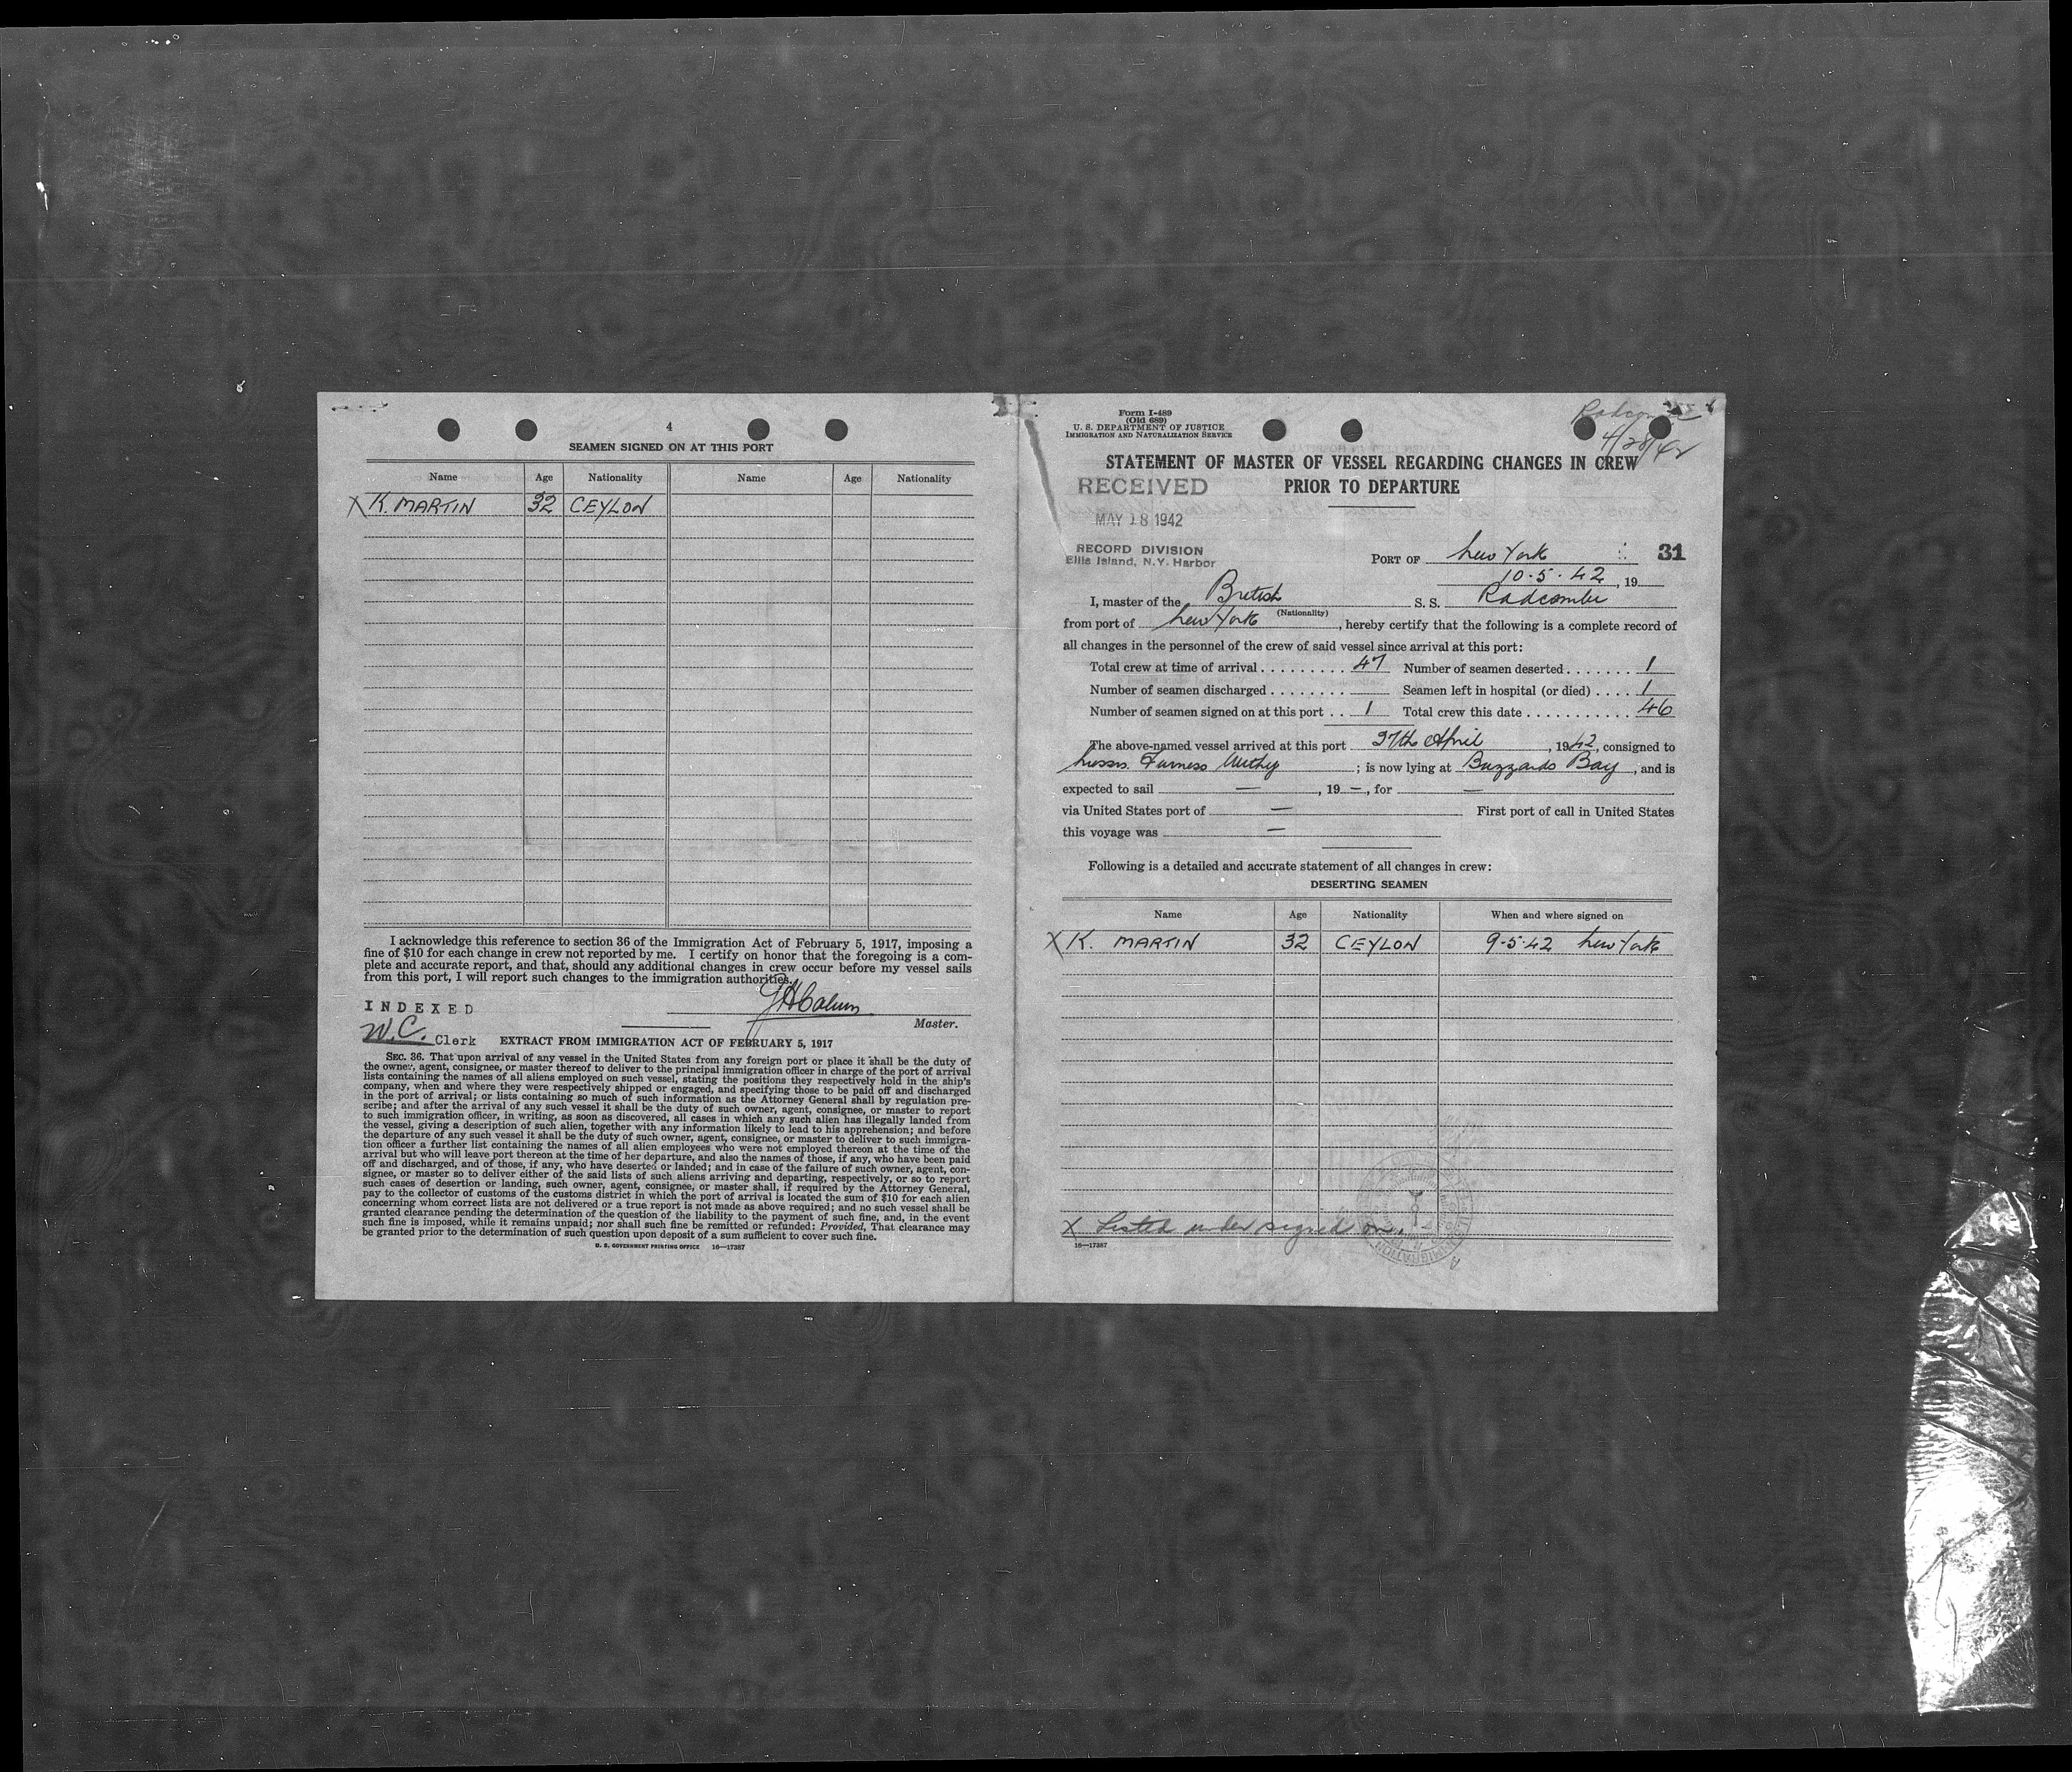 4
SEAMEN SIGNED ON AT THIS PORT
Name Age Nationality Name Age Nationality
X K. MARTIN 32 CEYLON
I acknowledge this reference to section 36 of the Immigration Act of February 5, 1917, imposing a
fine of $10 for each change in crew not reported by me. I certify on honor that the foregoing is a com-
plete and accurate report, and that, should any additional changes in crew occur before my vessel sails
from this port, I will report such changes to the immigration authorities.
INDEXED
Master.
W.C. Clerk EXTRACT FROM IMMIGRATION ACT OF FEBRUARY 5, 1917
SEC. 36. That upon arrival of any vessel in the United States from any foreign port or place it shall be the duty of
the owner, agent, consignee, or master thereof to deliver to the principal immigration officer in charge of the port of arrival
lists containing the names of all aliens employed on such vessel, stating the positions they respectively hold in the ship's
company, when and where they were respectively shipped or engaged, and specifying those to be paid off and discharged
in the port of arrival; or lists containing so much of such information as the Attorney General shall by regulation pre-
scribe; and after the arrival of any such vessel it shall be the duty of such owner, agent, consignee, or master to report
to such immigration officer, in writing, as soon as discovered, all cases in which any such alien has illegally landed from
the vessel, giving a description of such alien, together with any information likely to lead to his apprehension; and before
the departure of any such vessel it shall be the duty of such owner, agent, consignee, or master to deliver to such immigra-
tion officer a further list containing the names of all alien employees who were not employed thereon at the time of the
arrival but who will leave port thereon at the time of her departure, and also the names of those, if any, who have been paid
off and discharged, and of those, if any, who have deserted or landed; and in case of the failure of such owner, agent, con-
signee, or master so to deliver either of the said lists of such aliens arriving and departing, respectively, or so to report
such cases of desertion or landing, such owner, agent, consignee, or master shall, if required by the Attorney General,
pay to the collector of customs of the customs district in which the port of arrival is located the sum of $10 for each alien
concerning whom correct lists are not delivered or a true report is not made as above required; and no such vessel shall be
granted clearance pending the determination of the question of the liability to the payment of such fine, and, in the event
such fine is imposed, while it remains unpaid; nor shall such fine be remitted or refunded: Provided, That clearance may
be granted prior to the determination of such question upon deposit of a sum sufficient to cover such fine.
U. S. GOVERNMENT PRINTING OFFICE 16—17387
Form I-489
(Old 689)
U. S. DEPARTMENT OF JUSTICE
IMMIGRATION AND NATURALIZATION SERVICE
4/28/42
STATEMENT OF MASTER OF VESSEL REGARDING CHANGES IN CREW
PRIOR TO DEPARTURE
RECEIVED
MAY 18 1942
RECORD DIVISION
Ellis Island, N.Y. Harbor
PORT OF New York 31
10.5.42, 19
I, master of the British S. S. Radcombe
(Nationality)
from port of New York, hereby certify that the following is a complete record of
all changes in the personnel of the crew of said vessel since arrival at this port:
Total crew at time of arrival 47 Number of seamen deserted 1
Number of seamen discharged Seamen left in hospital (or died) 1
Number of seamen signed on at this port 1 Total crew this date 46
The above-named vessel arrived at this port 27th April, 1942, consigned to
Messrs. Furness Withy; is now lying at Buzzards Bay, and is
expected to sail —, 19 —, for —
via United States port of — First port of call in United States
this voyage was —
Following is a detailed and accurate statement of all changes in crew:
DESERTING SEAMEN
Name Age Nationality When and where signed on
X K. MARTIN 32 CEYLON 9.5.42 New York
X Listed under signed on.
16—17387